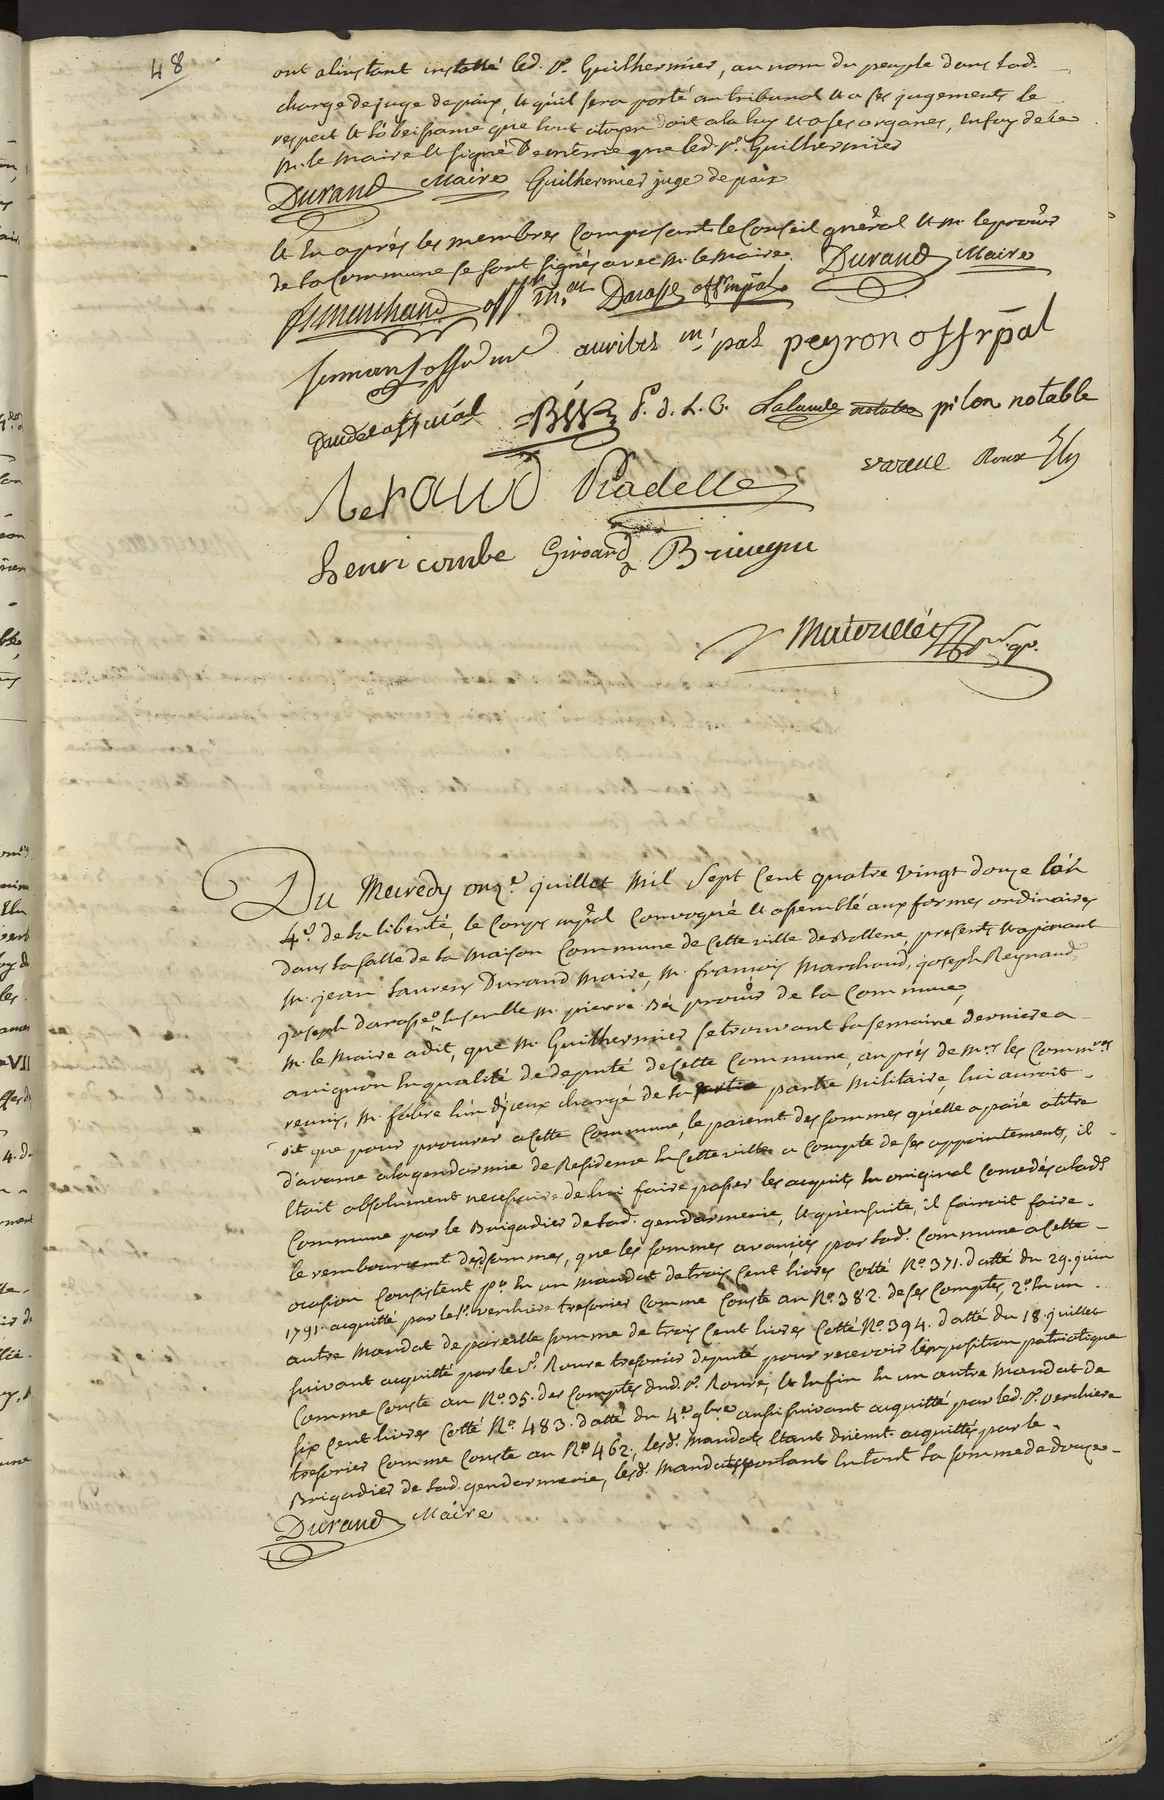 48
ont a l'instant installé led. Sr. Guilhermier, au nom du peuple dans lad.
charge de juge de paix, et qu'il sera porté au tribunal et a ses jugements le
respect et l'obeissance que tout citoyen doit a la loy et a ses organes, en foy de ce
M. le Maire et signé de même que led. Sr. Guilhermier
Durand Maire Guilhermier juge de paix
et en après les membres composant le Conseil gnéral et M. le procur
de la Commune se sont signés avec M. le Maire. Durand Maire
f. marchand off. m. Darasse off. mpal
off peyron off mpal
P. d. L. C. Lalande notable pilon notable
Roux
Reraud Pradelle
henri combe Girard
Du Mecredy onze. juillet Mil Sept Cent quatre vingt douze l'an
4e. de la liberté, le Corps mpal Convoqué et assemblé aux formes ordinaires
dans la salle de la Maison Commune de Cette ville de Bollene, presents et opinant
M. jean Laurens Durand Maire, M. francois Marchand, joseph Reynaud,
joseph Darasse, ensemble M. pierre procur de la Commune,
M. le Maire a dit, que M. Guilhermier se trouvant la semaine derniere a
avignon en qualité de deputé de Cette Commune, auprès de Mrs les Commres
reunis, M. fabre l'un d'jceux chargé de la partie Militaire, lui auroit
dit que pour procurer a Cette Commune, le paiemt. des sommes qu'elle a paié a titre
d'avance a la gendarmerie de Residence en Cette ville a Compte de ses appointements, il
Etait absolument necessaire de lui faire passer les acquits en original Concédés a lad.
Commune par le Brigadier de lad. gendarmerie, et qu'ensuite, il fairoit faire
le remboursemt. desd. sommes, que les sommes avancées par lad. Commune a Cette
ocasion Consistent Po. en un Mandat de trois Cent livres Cotté No. 371. datté du 29. juin
1791. acquitté par le Sr. verchiere tresorier Comme Conste au No. 382. de ses Comptes, 2o. en un
autre Mandat de pareille somme de trois Cent livres Cotté No. 394. datté du 18. juillet
suivant acquitté par le Sr. Roure tresorier deputé pour recevoir l'imposition patriotique
Comme Conste au No. 35. des Comptes dud. Sr. Roure, et enfin en un autre Mandat de
six Cent livres Cotté No. 483. datté du 4e. 9bre aussi suivant acquitté par led. Sr. verchiere
tresorier Comme Conste au No. 462., lesd. Mandats Etant duemt. acquittés par le
Brigadier de lad. gendarmerie, lesd. Mandats portant en tout la somme de douze
Durand Maire